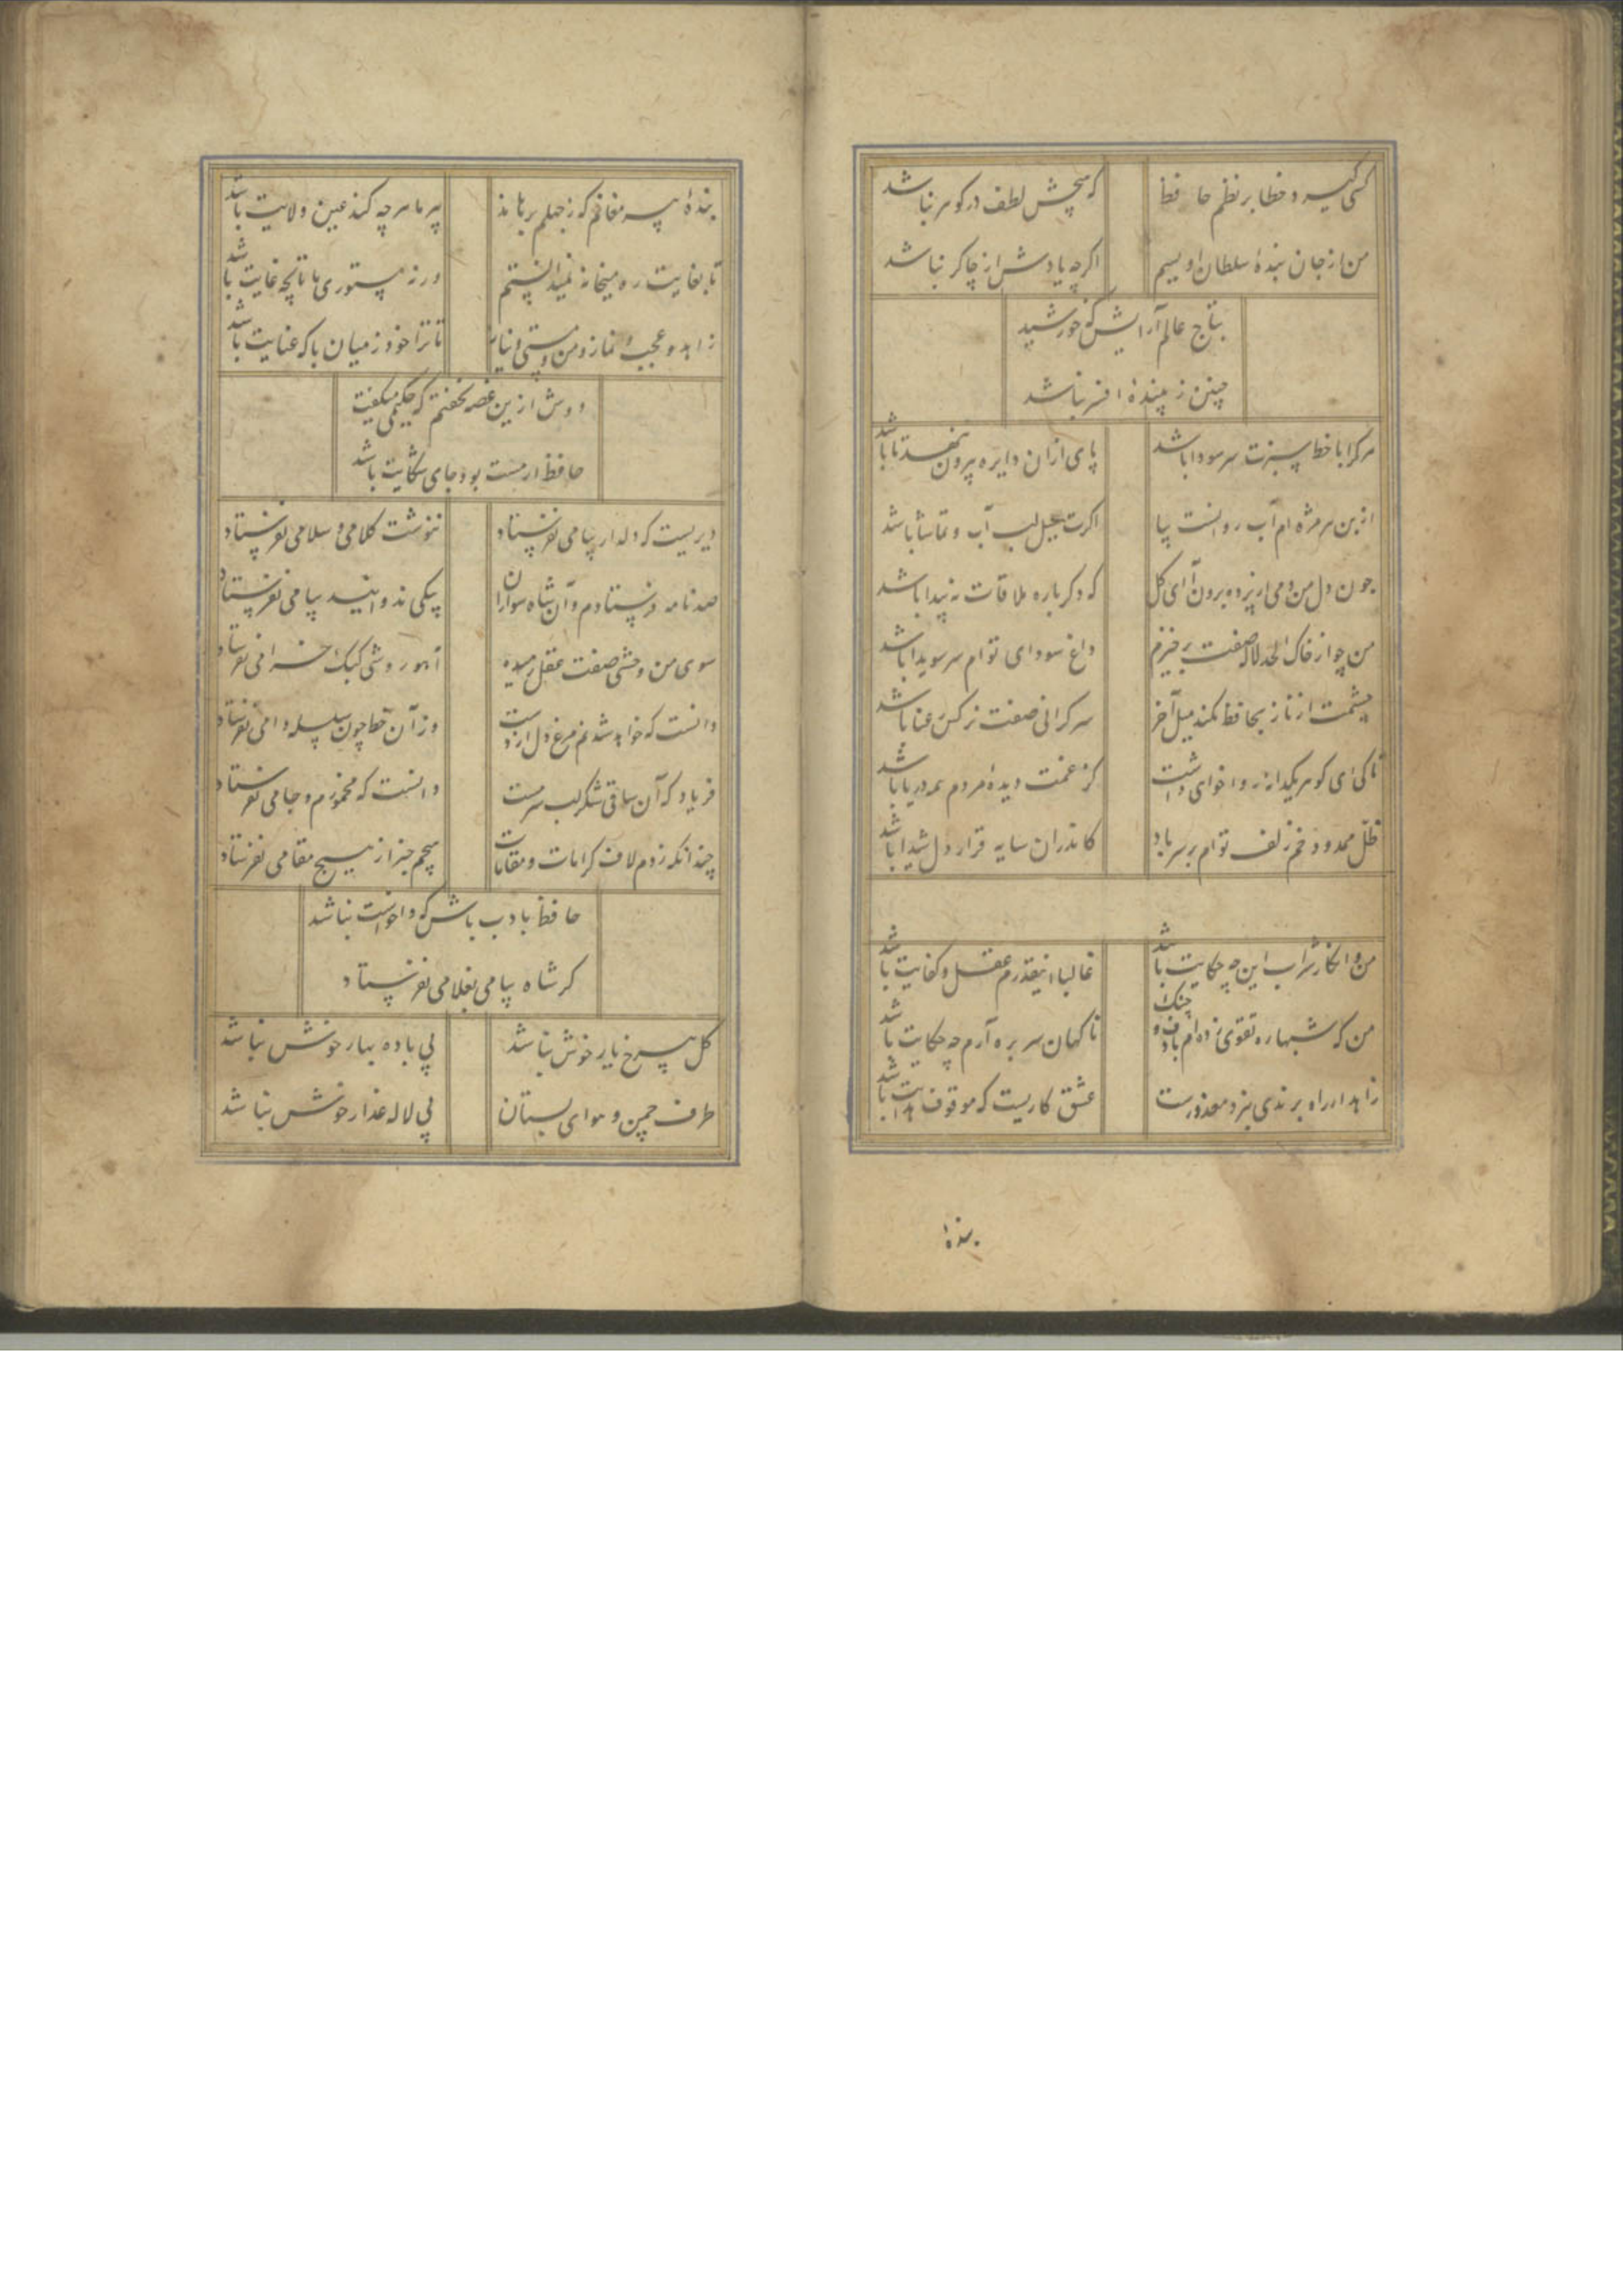 کسی گیرد خطا بر نظم حافظ
که هیچش لطف در گوهر نباشد
من از جان بندهٔ سلطان اویسم
اگرچه یادش از چاکر نباشد
بتاج عالم آرایش که خورشید
چنین زیبندهٔ افسر نباشد
هرکرا با خط سبزت سر سودا باشد
پای ازان دایره بیرون ننهد تا باشد
از بن هر مژه ام آب روانست بیا
اگرت میل لب آب و تماشا باشد
چون دل من دمی از پرده برون آ ای گل
که دگرباره ملاقات نه پیدا باشد
من چو از خاک لحد لاله صفت برخیزم
داغ سودای توام سر سویدا باشد
چشمت از ناز بحافظ نکند میل آخر
سرگرانی صفت نرگس رعنا باشد
تا کی ای گوهر یکدانه روا خواهی داشت
کز غمت دیدهٔ مردم همه دریا باشد
ظل ممدود خم زلف توام بر سر باد
کاندران سایه قرار دل شیدا باشد
من و انکار شراب این چه حکایت باشد
غالبا اینقدرم عقل و کفایت باشد
من که شبها ره تقوی زده ام با دف و چنگ
ناگهان سر بره آرم چه حکایت باشد
زاهد ار راه برندی نبرد معذورست
عشق کاریست که موقوف هدایت باشد
بندهٔ
بندهٔ پیر مغانم که ز جهلم برهاند
پیر ما هرچه کند عین ولایت باشد
تا بغایت ره میخانه نمیدانستم
ورنه مستوری ما تا بچه غایت باشد
زاهد و عجب و نماز و من و مستی و نیاز
تا ترا خود ز میان با که عنایت باشد
دوش ازین غصه نخفتم که حکیمی میگفت
حافظ ار مست بود جای شکایت باشد
دیریست که دلدار پیامی نفرستاد
ننوشت کلامی و سلامی نفرستاد
صد نامه فرستادم و آن شاه سواران
پیکی ندوانید پیامی نفرستاد
سوی من وحشی صفت عقل رمیده
آهو روشی کبک خرامی نفرستاد
دانست که خواهد شدنم مرغ دل از دست
وز آن خط چون سلسله دامی نفرستاد
فریاد که آن ساقی شکر لب سرمست
دانست که مخمورم و جامی نفرستاد
چندانکه زدم لاف کرامات و مقامات
هیچم خبر از هیچ مقامی نفرستاد
حافظ بادب باش که واخواست نباشد
گر شاه پیامی بغلامی نفرستاد
گل بی رخ یار خوش نباشد
بی باده بهار خوش نباشد
طرف چمن و هوای بستان
بی لاله عذار خوش نباشد